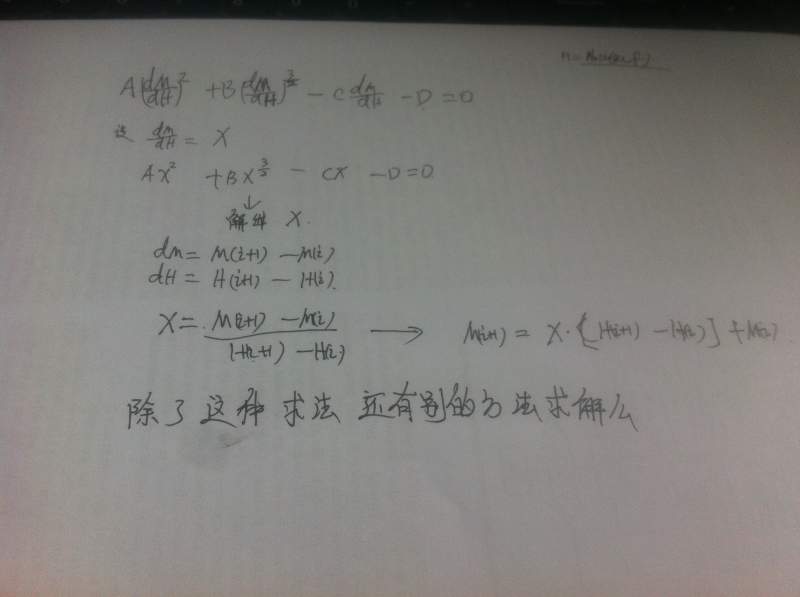 A(dM/dH)² + B(dM/dH)^(3/2) - C dM/dH - D = 0
设 dM/dH = X
AX² + BX^(3/2) - CX - D = 0
↓
解出 X.
dM = M(i+1) - M(i)
dH = H(i+1) - H(i)
X = (M(i+1) - M(i)) / (H(i+1) - H(i)) → M(i+1) = X·[H(i+1) - H(i)] + M(i)
除了这种求法 还有别的方法求解么